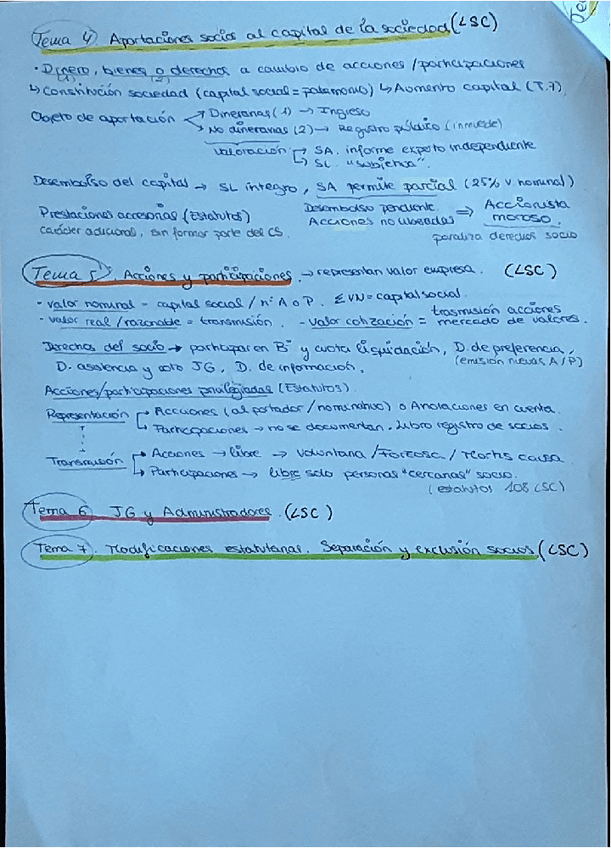 Tema 4 Aportaciones socios al capital de la sociedad (LSC)
· Dinero, bienes o derechos a cambio de acciones/participaciones
(1) (2)
↳ Constitución sociedad (capital social = patrimonio) ↳ Aumento capital (T.7)
Objeto de aportación Dinerarias (1) → Ingreso
No dinerarias (2) → Registro público (inmueble)
Valoración SA. informe experto independiente
SL "subjetiva".
Desembolso del capital → SL íntegro, SA permite parcial (25% v nominal)
Prestaciones accesorias (Estatutos) Desembolso pendiente ⇒ Accionista
carácter adicional, sin formar parte del CS. Acciones no liberadas moroso.
paraliza derechos socio
Tema 5 Acciones y participaciones. → representan valor empresa. (LSC)
- valor nominal = capital social / nº A o P. ΣVN = capital social.
- valor real / razonable = transmisión. - Valor cotización = trasmisión acciones
mercado de valores.
Derechos del socio → participar en Bº y cuota liquidación, D. de preferencia,
D. asistencia y voto JG, D. de información. (emisión nuevas A/P)
Acciones/participaciones privilegiadas (Estatutos)
Representación Acciones (al portador/nominativo) o Anotaciones en cuenta.
Participaciones → no se documentan. Libro registro de socios.
Transmisión Acciones → libre → Voluntaria / Forzosa / Mortis causa
Participaciones → libre solo personas "cercanas" socio.
(estatutos 108 LSC)
Tema 6 JG y Administradores. (LSC)
Tema 7. Modificaciones estatutarias. Separación y exclusión socios (LSC)